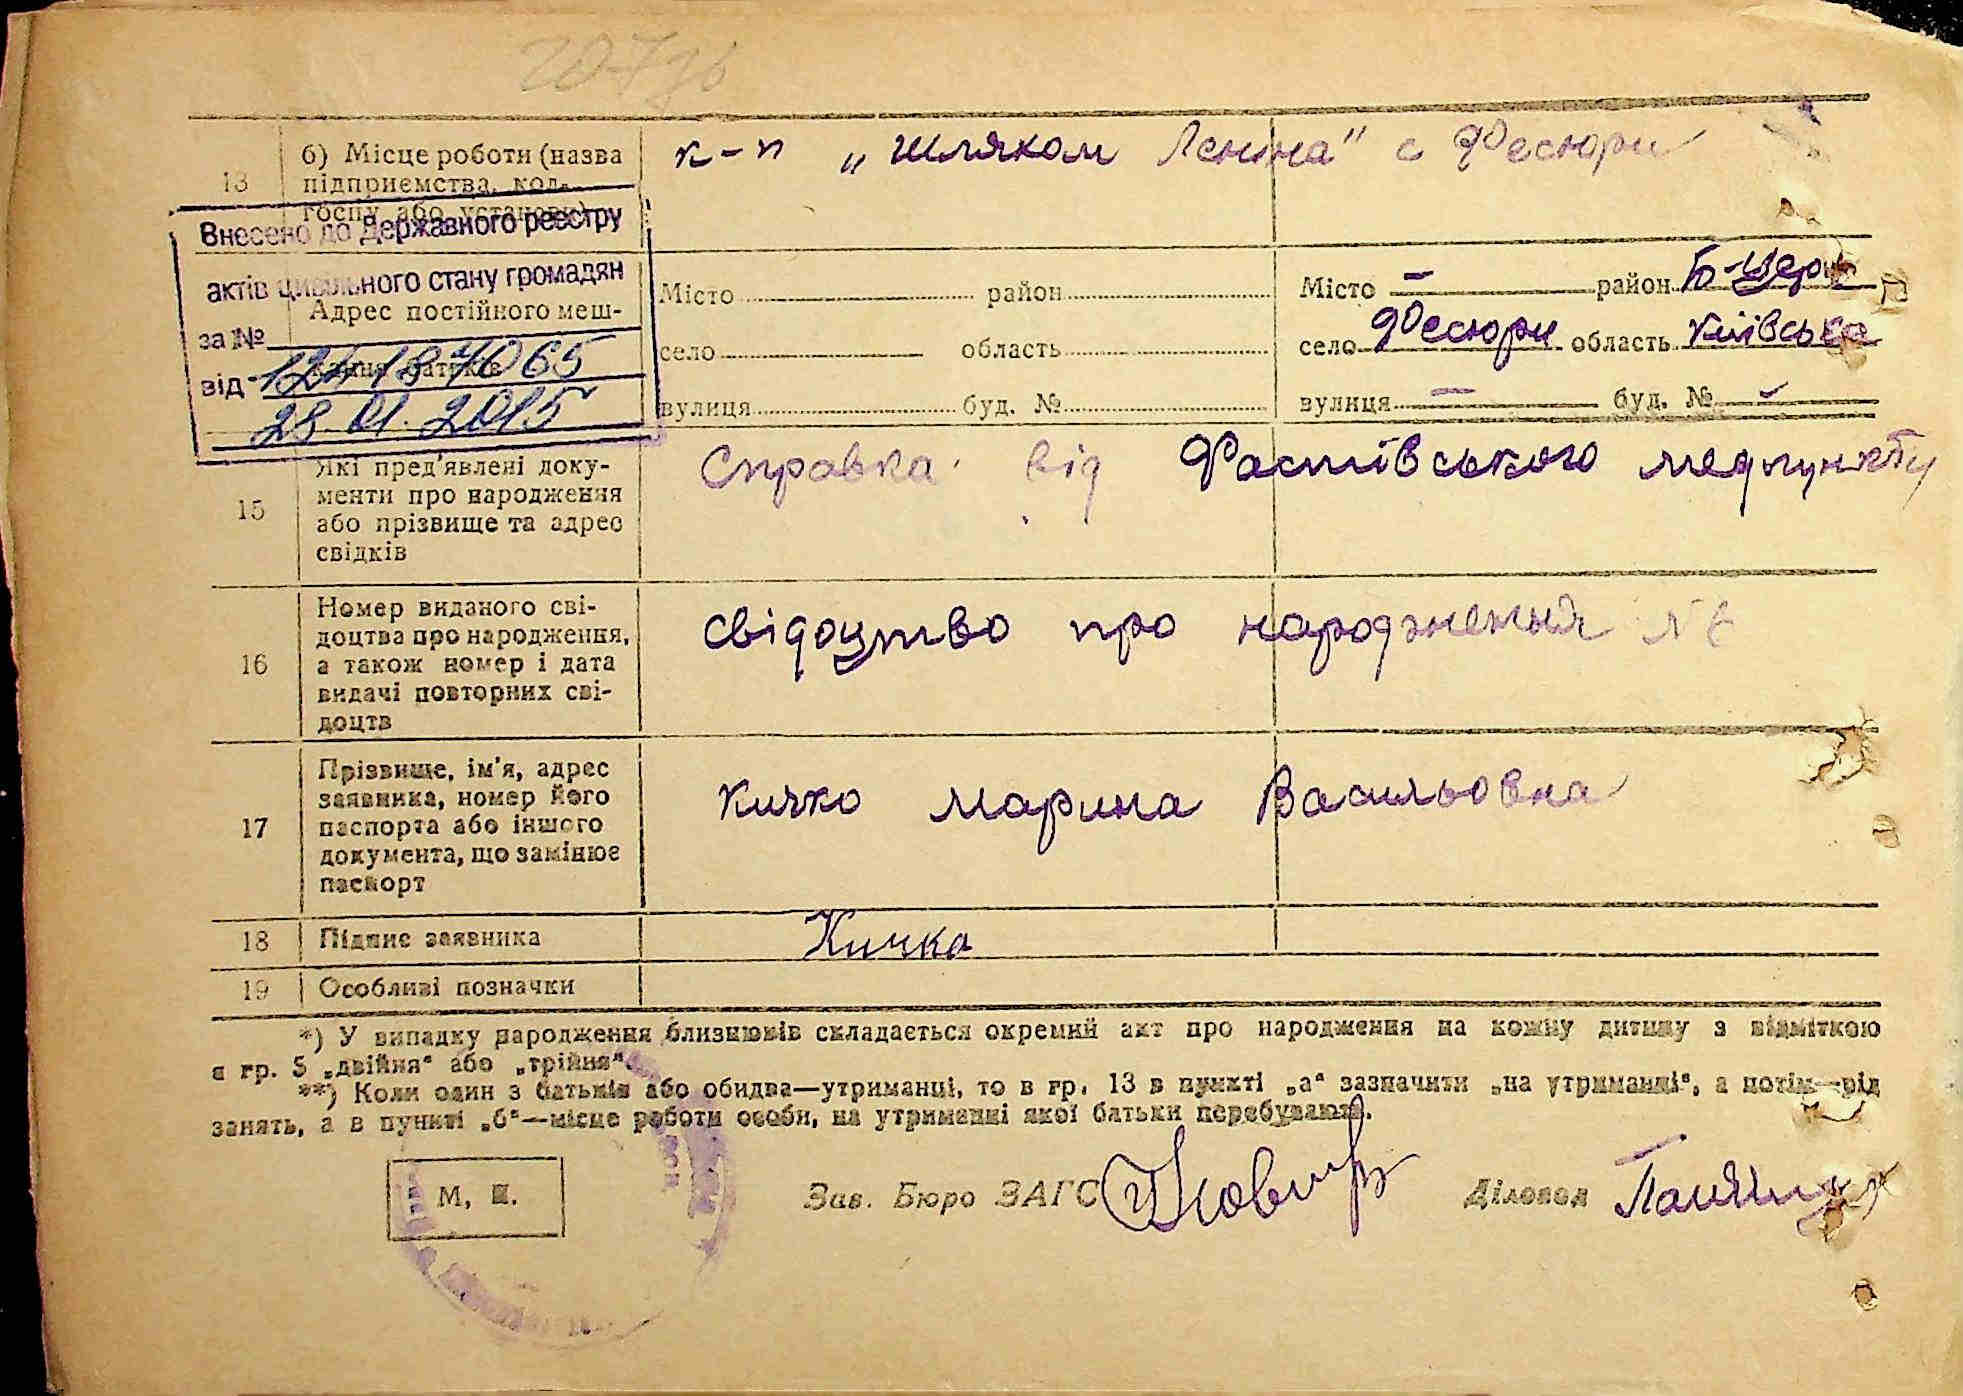 13 б) Місце роботи (назва підприємства, колгоспу або установи) к-п „Шляхом Леніна" с Фесюри
Внесено до Державного реєстру
актів цивільного стану громадян
за №
12418
від
28.01.2015
Адрес постійного мешкання батьків
Місто район Місто — район Б-Церк
село область село Фесюри область Київська
вулиця буд. № вулиця — буд. № —
15 Які пред'явлені документи про народження або прізвище та адрес свідків
Справка від Фастівського медпункту
16 Номер виданого свідоцтва про народження, а також номер і дата видачі повторних свідоцтв
свідоцтво про народження №
17 Прізвище, ім'я, адрес заявника, номер його паспорта або іншого документа, що замінює паспорт
Кичко Марина Васильовна
18 Підпис заявника Кичко
19 Особливі позначки
*) У випадку народження близнюків складається окремий акт про народження на кожну дитину з відміткою
в гр. 5 „двійня" або „трійня".
**) Коли один з батьків або обидва—утриманці, то в гр. 13 в пункті „а" зазначити „на утриманні", а потім—рід
занять, а в пункті „б"—місце роботи особи, на утриманні якої батьки перебувають.
М. П. Зав. Бюро ЗАГС Діловод